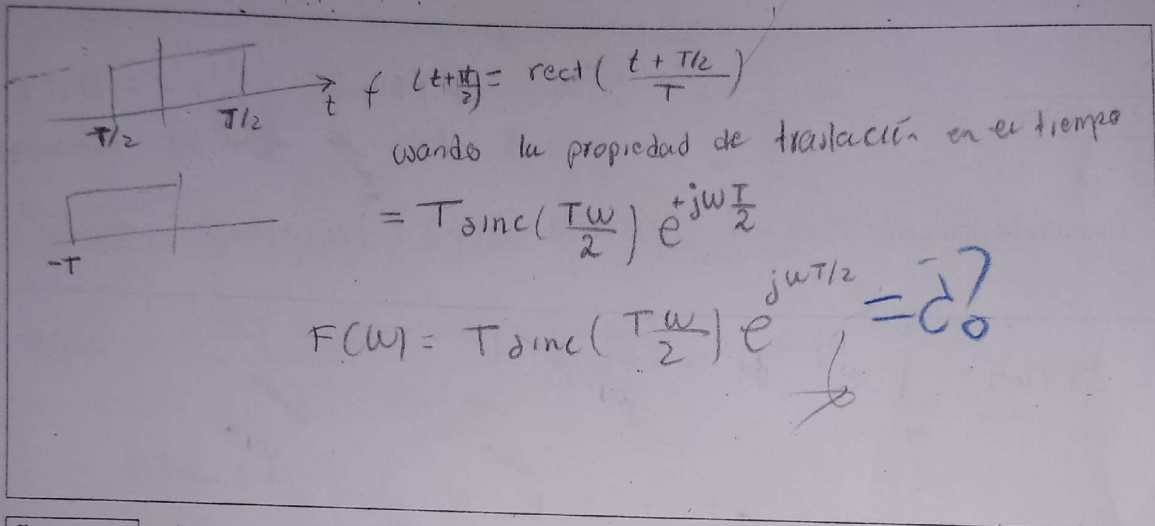 f (t+T/2) = rect( (t + T/2)/T )
t
T/2 T/2
usando la propiedad de traslación en el tiempo
-T
= T sinc( Tω/2 ) e^{+jω T/2}
F(ω) = T sinc( Tω/2 ) e^{jωT/2} = ¿?